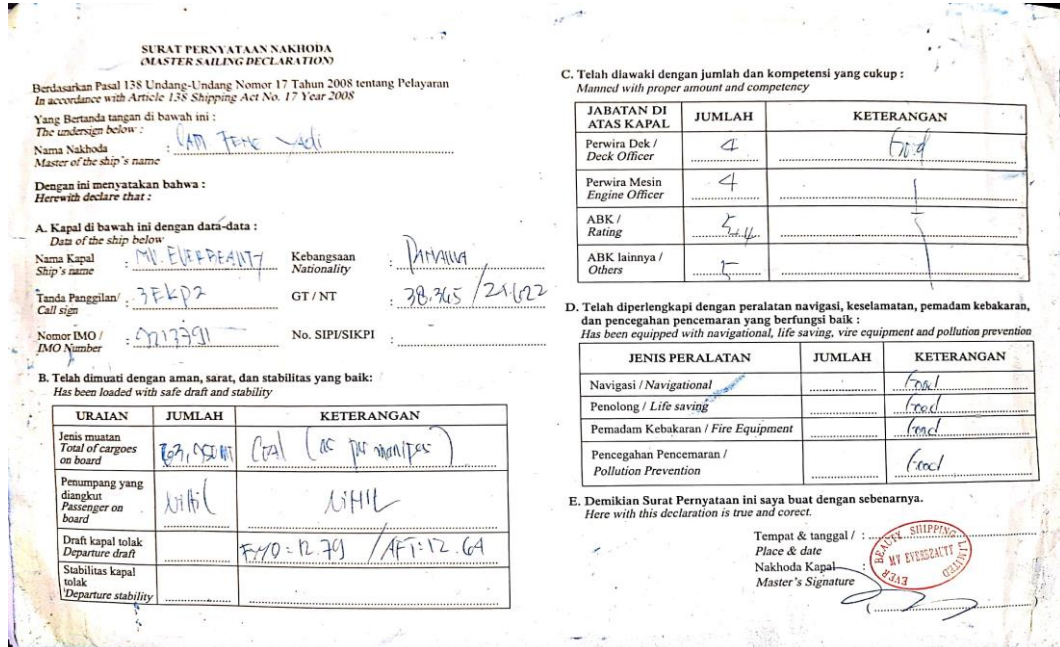 SURAT PERNYATAAN NAKHODA
(MASTER SAILING DECLARATION)
Berdasarkan Pasal 138 Undang-Undang Nomor 17 Tahun 2008 tentang Pelayaran
In accordance with Article 138 Shipping Act No. 17 Year 2008
Yang Bertanda tangan di bawah ini :
The undersign below :
Nama Nakhoda :
Master of the ship's name
Dengan ini menyatakan bahwa :
Herewith declare that :
A. Kapal di bawah ini dengan data-data :
Data of the ship below
Nama Kapal : MV. EVERBEAUTY Kebangsaan : PANAMA
Ship's name Nationality
Tanda Panggilan/ : 3EKP2 GT / NT : 38.345 /24.622
Call sign
Nomor IMO / : No. SIPI/SIKPI :
IMO Number
B. Telah dimuati dengan aman, sarat, dan stabilitas yang baik:
Has been loaded with safe draft and stability
URAIAN JUMLAH KETERANGAN
Jenis muatan
Total of cargoes COAL (as per manifes)
on board
Penumpang yang
diangkut NIHIL NIHIL
Passenger on
board
Draft kapal tolak FWD: 12.79 / AFT: 12.64
Departure draft
Stabilitas kapal
tolak
Departure stability
C. Telah diawaki dengan jumlah dan kompetensi yang cukup :
Manned with proper amount and competency
JABATAN DI JUMLAH KETERANGAN
ATAS KAPAL
Perwira Dek / 4 Good
Deck Officer
Perwira Mesin 4
Engine Officer
ABK / 5+4
Rating
ABK lainnya / 5
Others
D. Telah diperlengkapi dengan peralatan navigasi, keselamatan, pemadam kebakaran,
dan pencegahan pencemaran yang berfungsi baik :
Has been equipped with navigational, life saving, vire equipment and pollution prevention
JENIS PERALATAN JUMLAH KETERANGAN
Navigasi / Navigational Good
Penolong / Life saving Good
Pemadam Kebakaran / Fire Equipment Good
Pencegahan Pencemaran / Good
Pollution Prevention
E. Demikian Surat Pernyataan ini saya buat dengan sebenarnya.
Here with this declaration is true and corect.
Tempat & tanggal / :
Place & date
Nakhoda Kapal :
Master's Signature
EVER BEAUTY SHIPPING LIMITED
MV EVERBEAUTY